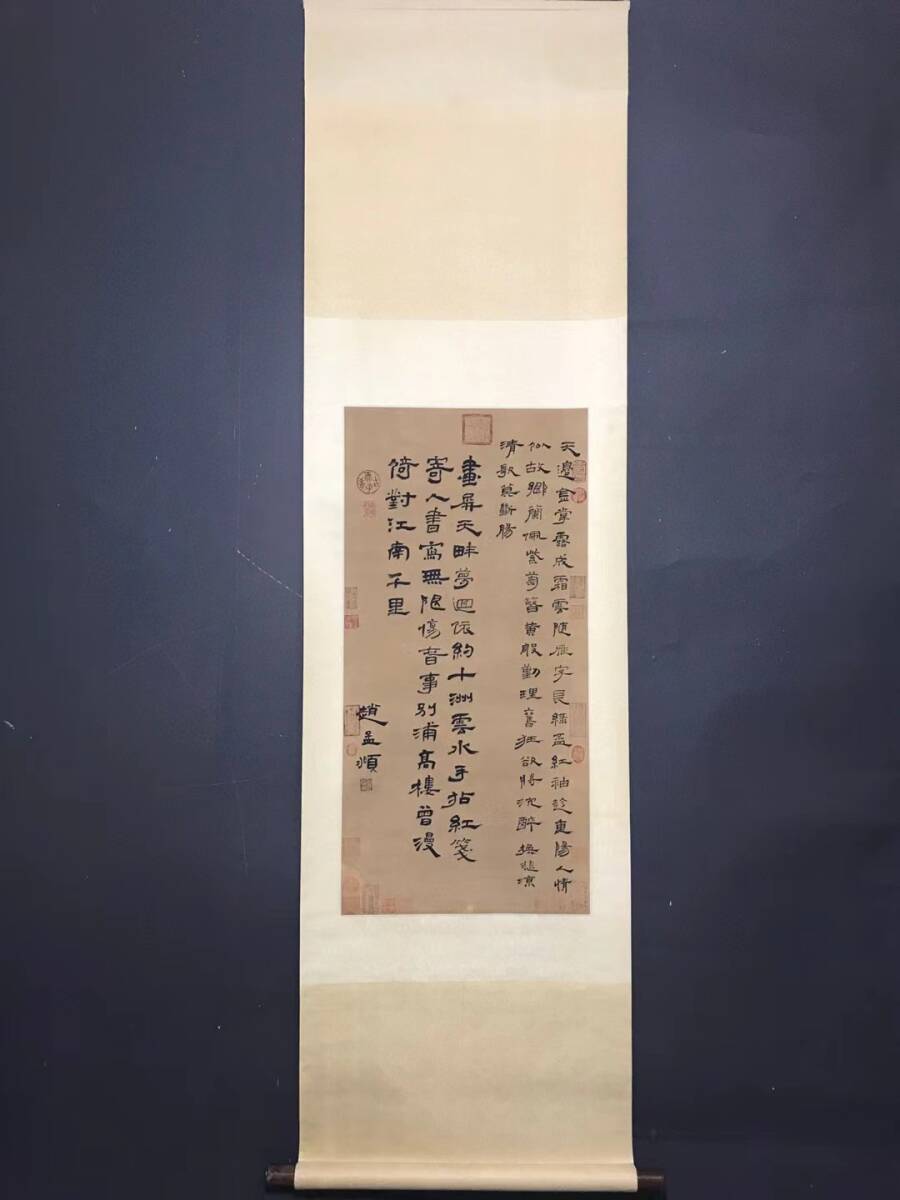 天邊金掌露成霜雲隨雁字長綠盃紅袖趁重陽人情
似故鄉蘭佩紫菊簪黃殷勤理舊狂欲將沈醉換悲涼
清歌莫斷腸
畫屏天畔夢迴依約十洲雲水手拈紅箋
寄人書寫無限傷春事別浦高樓曾漫
倚對江南千里
趙孟頫